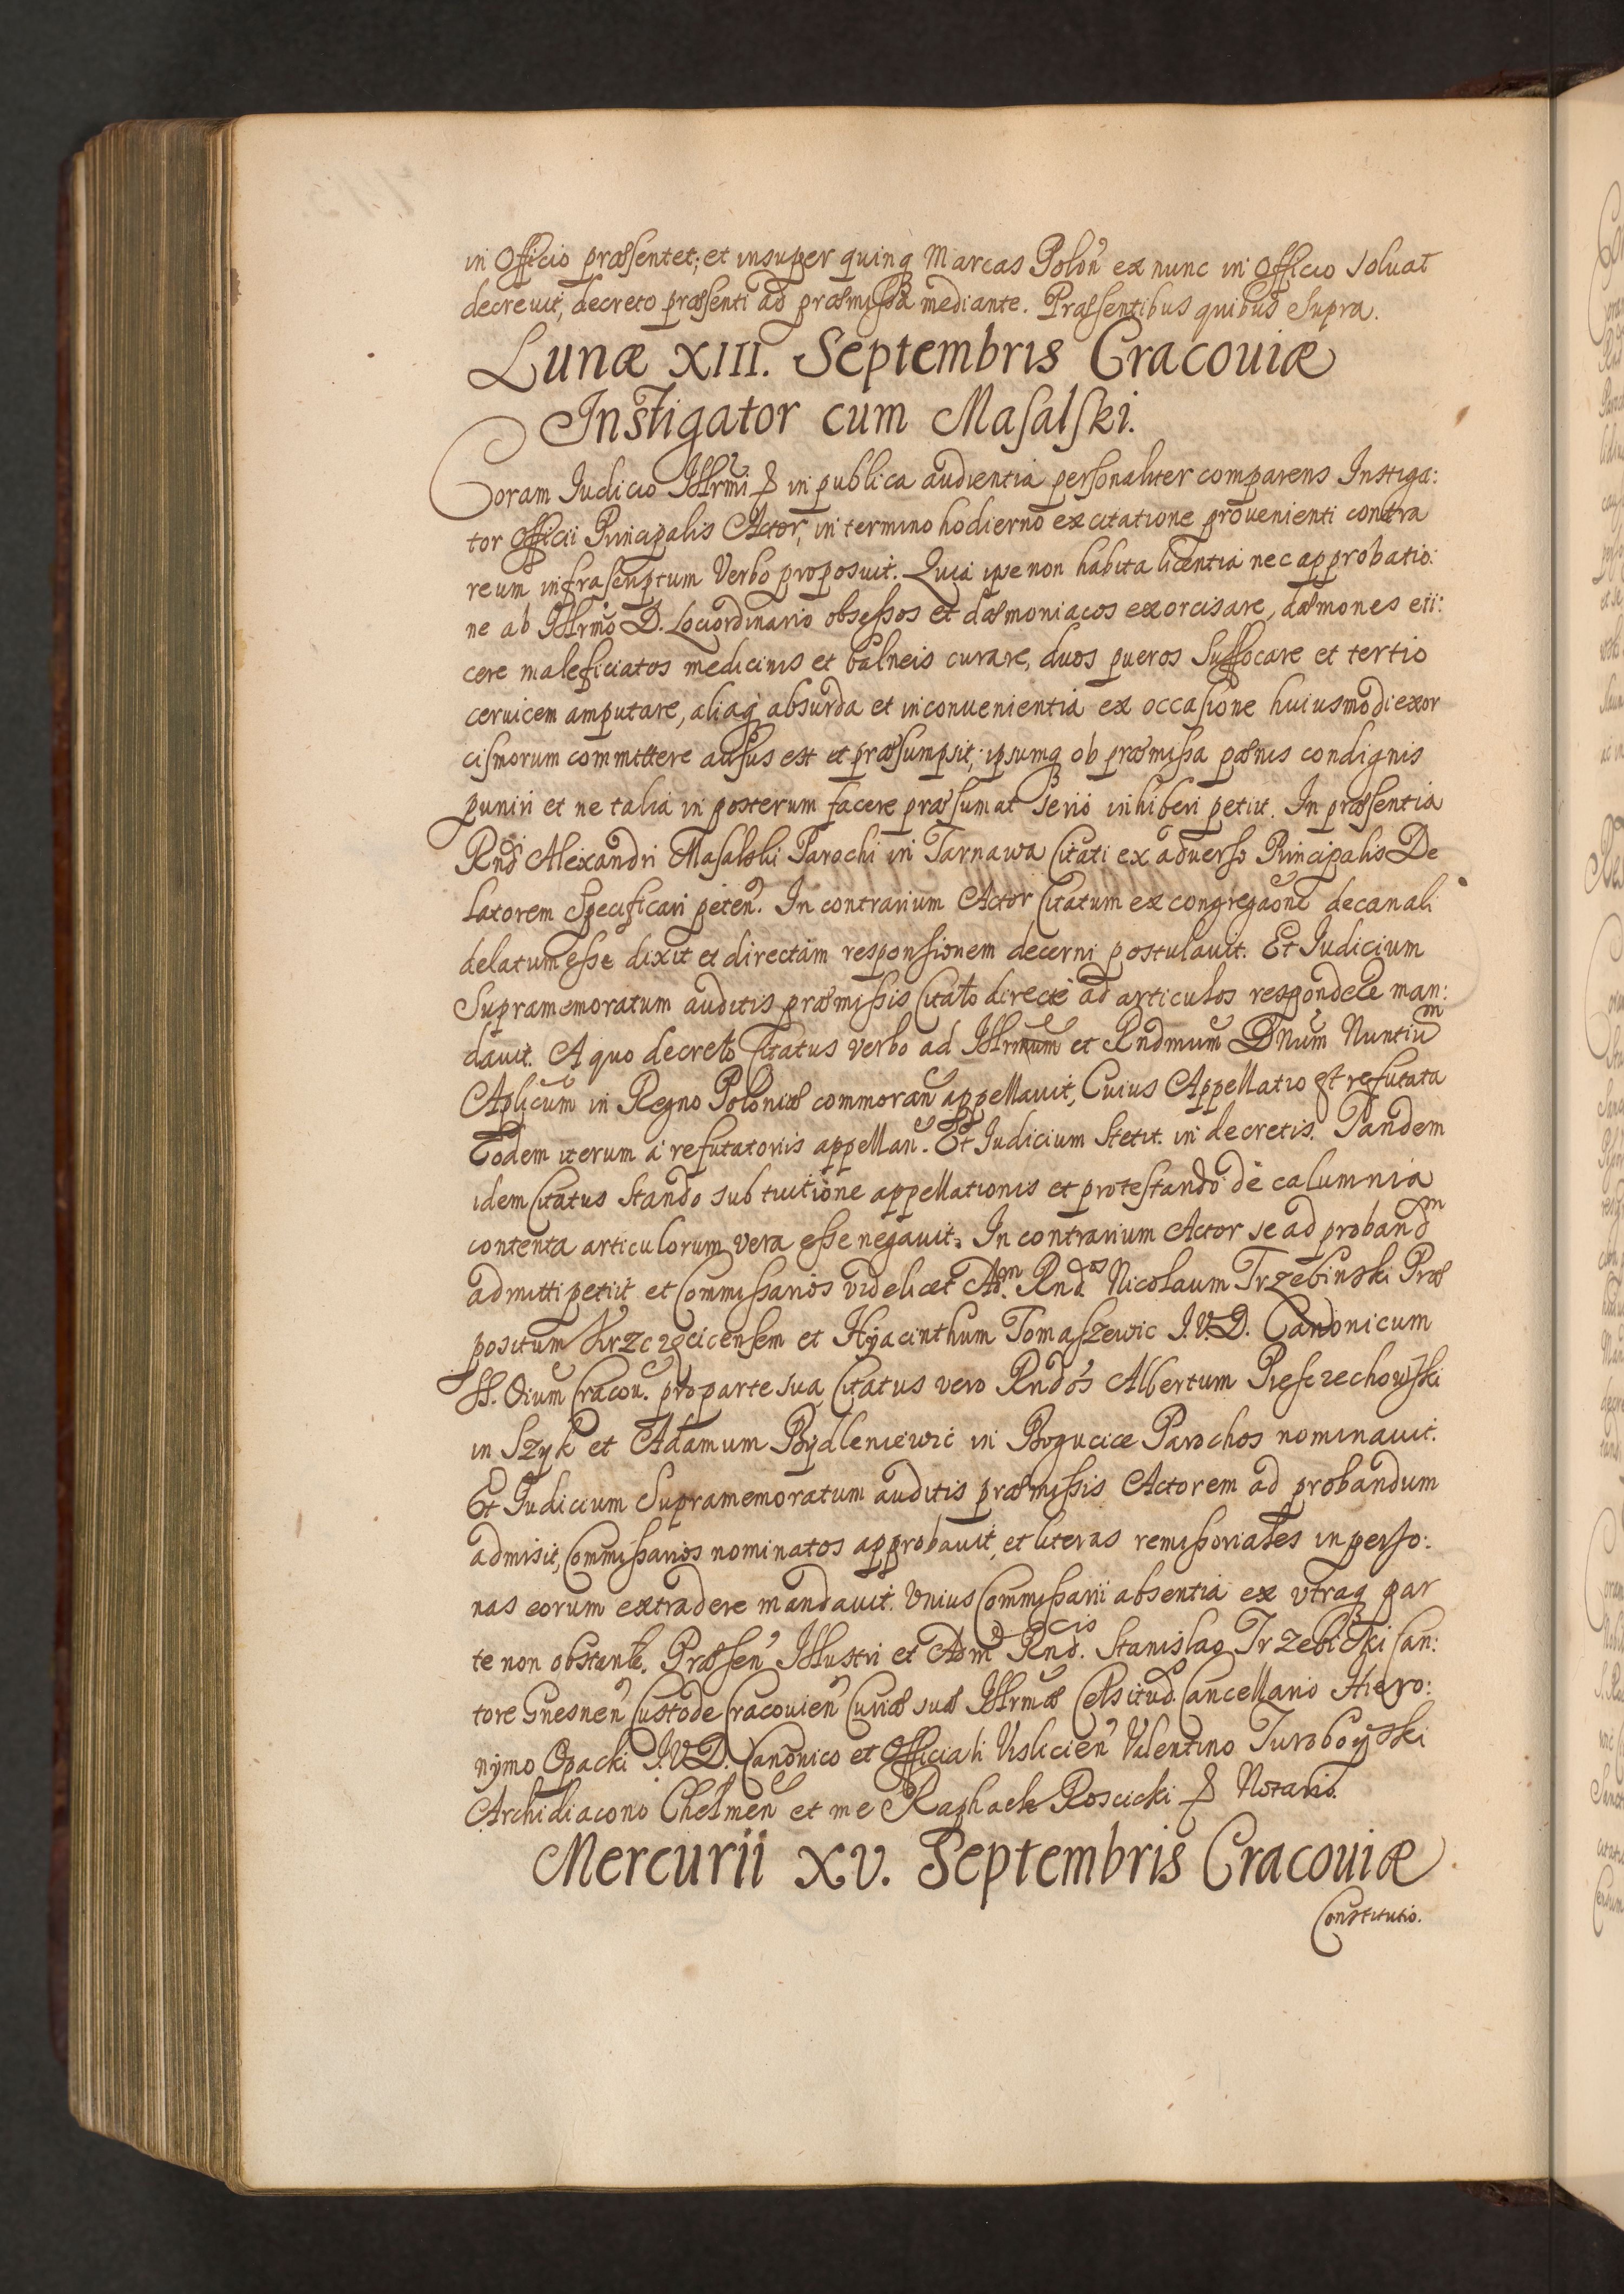 in Officio præsentet; et insuper quinq Marcas Polon ex nunc in Officio soluat
decreuit, decreto præsenti ad præmissa mediante. Præsentibus quibus supra.
Lunæ XIII. Septembris Cracouiæ
Instigator cum Masalski.
Coram Iudicio Illrmi & in publica audientia personaliter comparens Instiga:
tor Officii Principalis Actor, in termino hodierno ex citatione prouenienti contra
reum infrascriptum Verbo proposuit. Quia ipse non habita licentia nec approbatio:
ne ab Illrmo D. Lociordinario obsessos et dæmoniacos exorcisare, dæmones eii:
cere maleficiatos medicinis et balneis curare, duos pueros suffocare et tertio
ceruicem amputare, aliaq absurda et inconuenientia ex occasione huiusmodi exor
cismorum committere ausus est et præsumpsit; ipsumq ob præmissa pænis condignis
puniri et ne talia in posterum facere præsumat serio inhiberi petiit. In præsentia
Rndi Alexandri Masalski Parochi in Tarnawa Citati ex aduerso Principalis De
latorem Specificari peten. In contrarium Actor Citatum ex congregaone decanali
delatum esse dixit et directam responsionem decerni postulauit. Et Iudicium
Supramemoratum auditis præmissis Citato directe ad articulos respondere man:
dauit. A quo decreto Citatus verbo ad Illrmum et Rndmum Dnum Nuntiu͞m
Aplicum in Regno Poloniæ commoran appellauit, Cuius Appellatio est refutata
Eodem iterum a refutatoriis appellan. Et Iudicium stetit in decretis. Tandem
idem Citatus stando sub tuitione appellationis et protestando de calumnia
contenta articulorum vera esse negauit. In contrarium Actor se ad proband͞m
admitti petiit et Commissarios videlicet Adm. Rndos Nicolaum Trzebinski Præ
positum Krzczęcicensem et Hyacinthum Tomaszewic I.V.D. Canonicum
SS. Oium Cracou. pro parte sua Citatus vero Rndos Albertum Piesczechowski
in Szyk et Adamum Bydleniewic in Bogucice Parochos nominauit.
Et Iudicium Supramemoratum auditis præmissis Actorem ad probandum
admisit, Commissarios nominatos approbauit, et literas remissoriales in perso:
nas eorum extradere mandauit. Vnius Commissarii absentia ex vtraq par
te non obstante. Præsen Illustri et Adm Rndis Stanislao Trzebicki Can:
tore Gnesnen Custode Cracouien Curiæ suæ Illrmæ Celsitud. Cancellario Hiero:
nymo Opacki I.V.D. Canonico et Officiali Vislicien Valentino Turoboyski
Archidiacono Chelmen et me Raphaele Roscicki & Notario.
Mercurii XV. Septembris Cracouiæ
Constitutio.